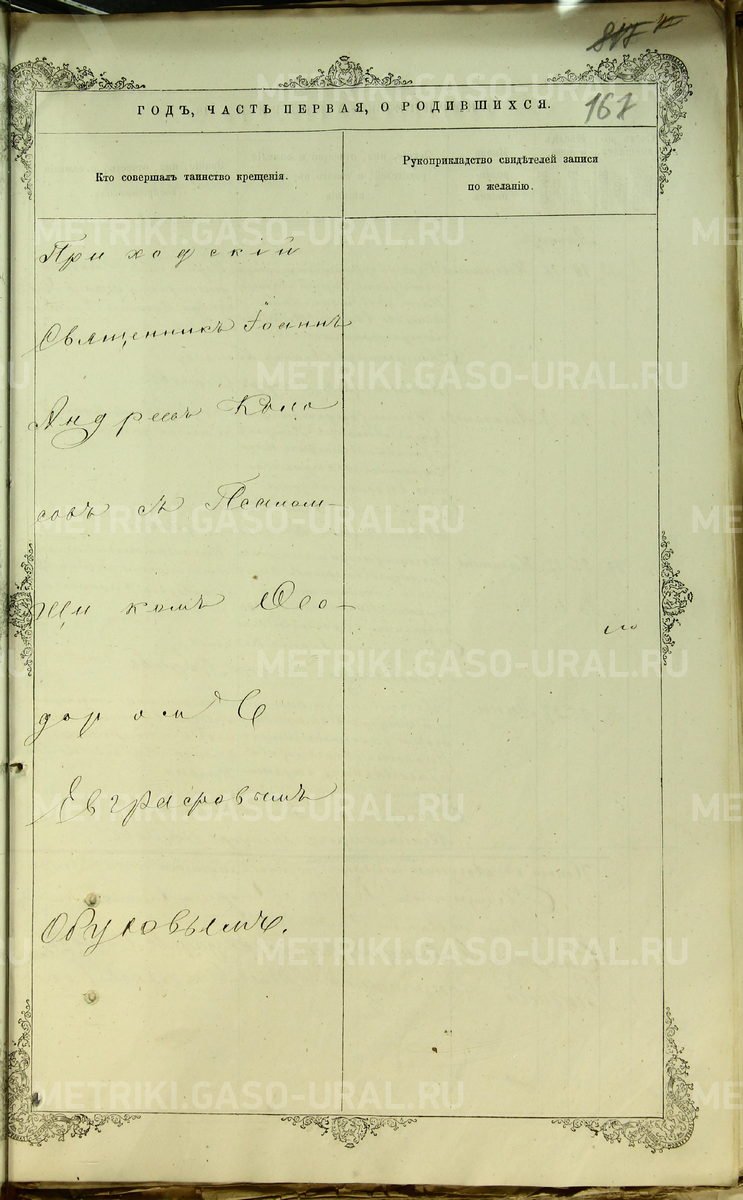 167
ГОДЪ, ЧАСТЬ ПЕРВАЯ, О РОДИВШИХСЯ.
Кто совершалъ таинство крещенія.
Рукоприкладство свидѣтелей записи
по желанію.
Приходскій
Священникъ Іоаннъ
Андреевъ Коло
совъ съ Псалом-
щикомъ Ѳео-
доромъ
Евграфовымъ
Обуховымъ.
METRIKI.GASO-URAL.RU